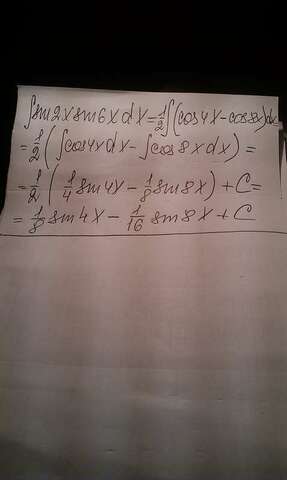 ∫sin2xsin6xdx=1/2∫(cos4x-cos8x)dx
=1/2(∫cos4xdx-∫cos8xdx)=
=1/2(1/4sin4x-1/8sin8x)+C=
=1/8sin4x-1/16sin8x+C